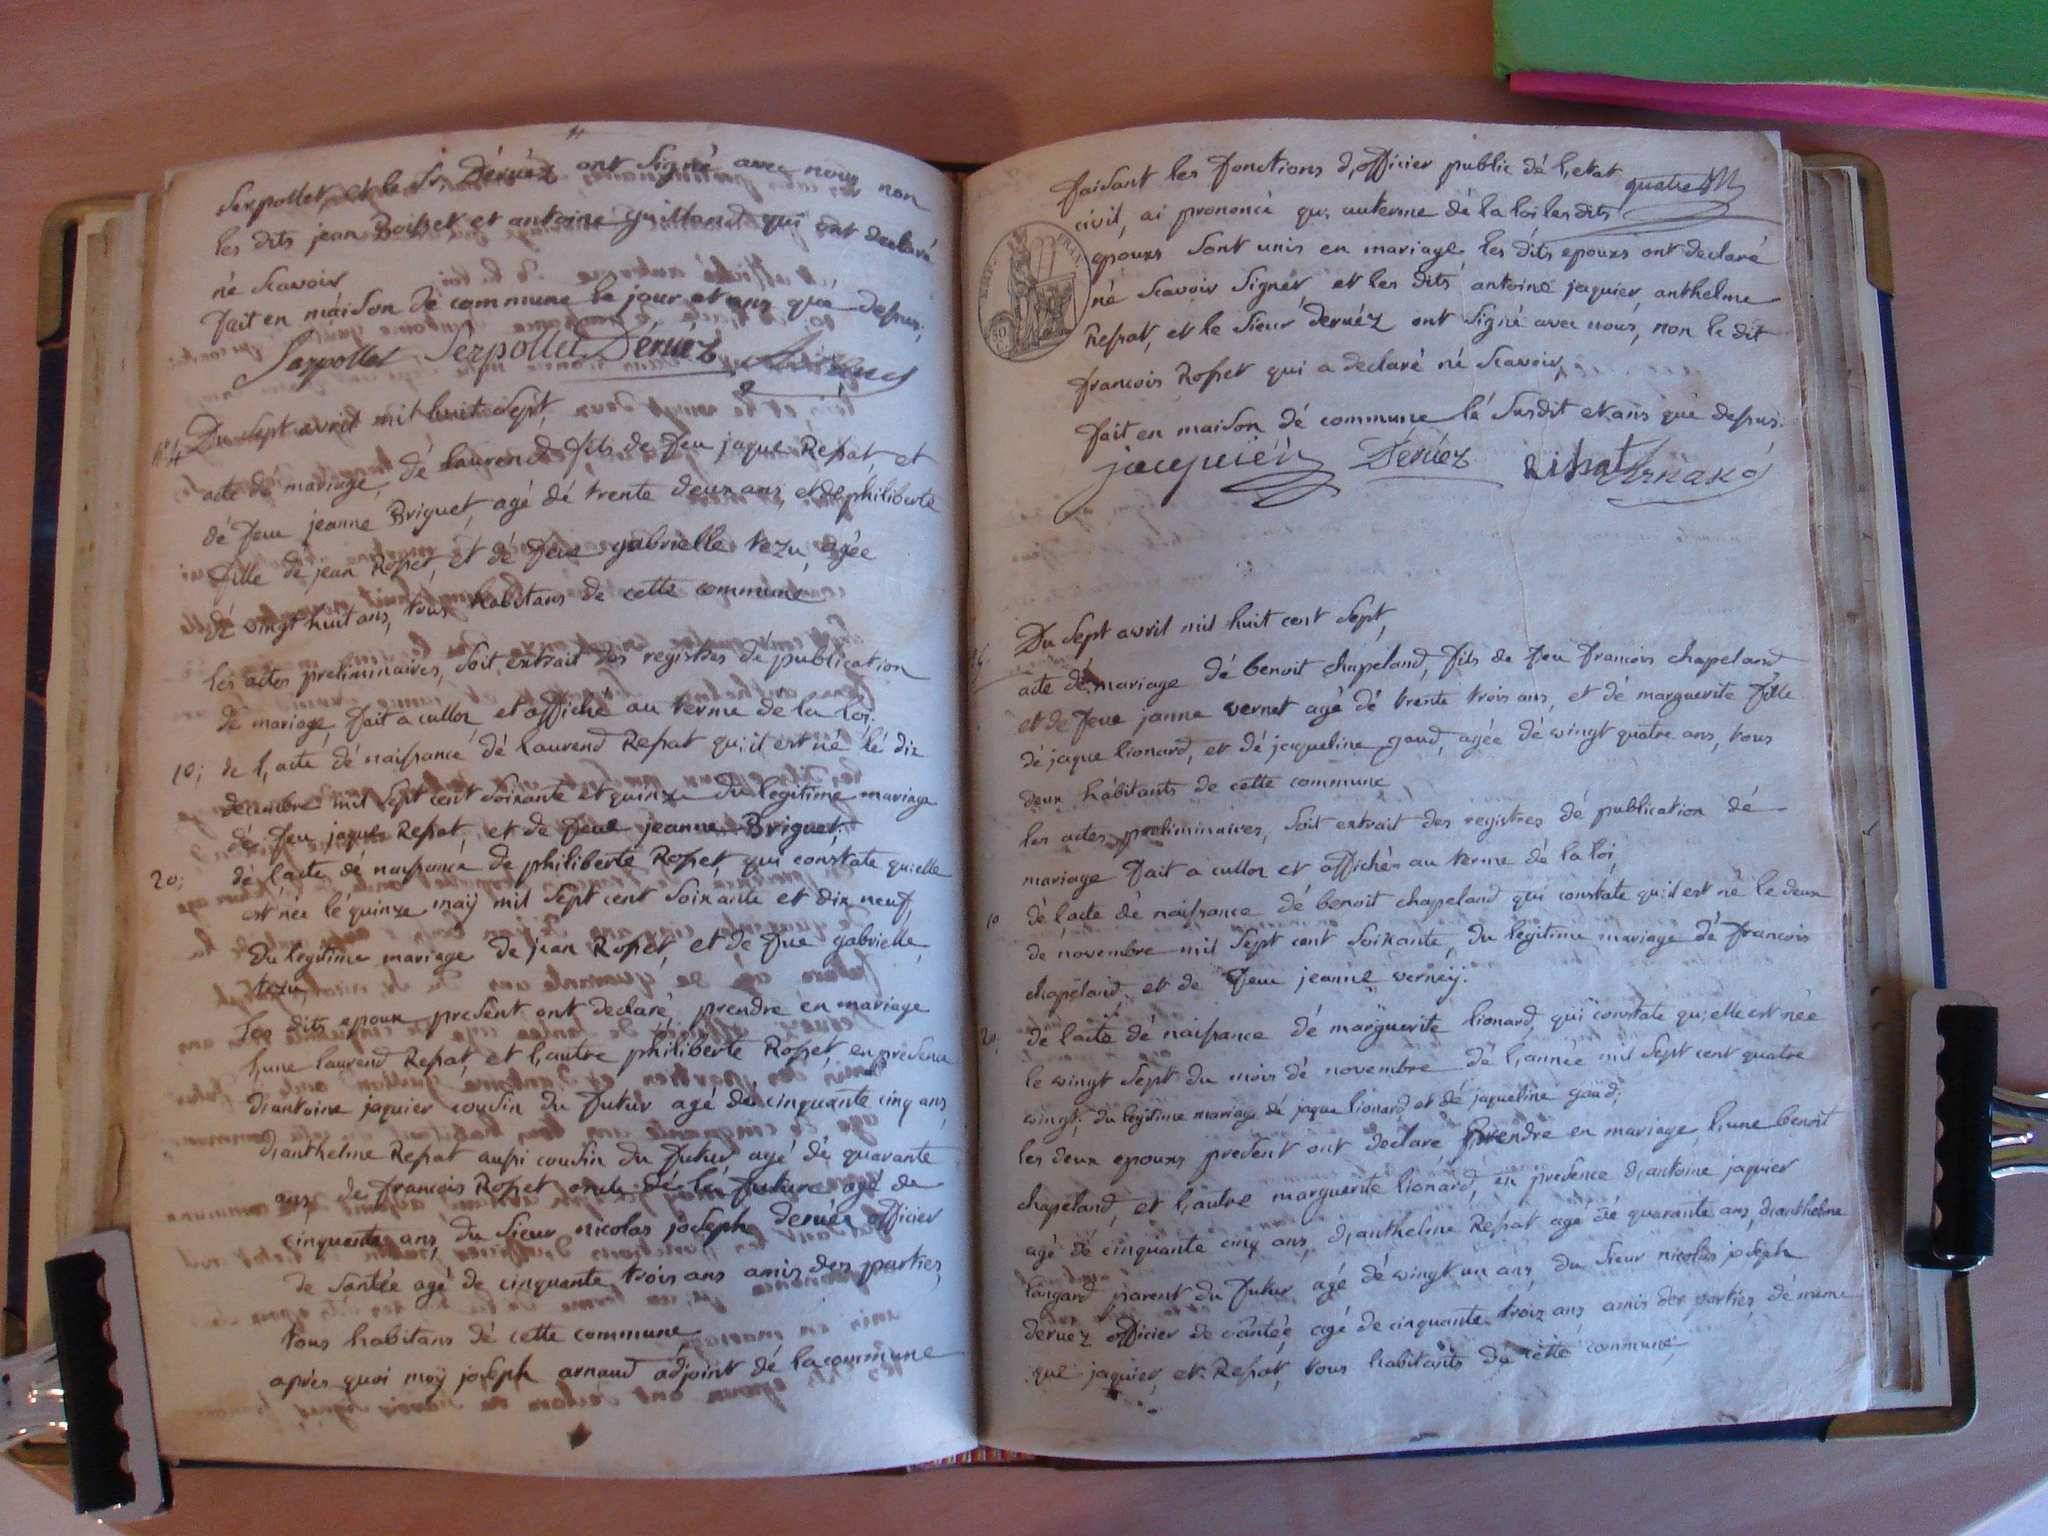 Serpollet, et le Sr. Déruéz ont signé avec nous non
les dits jean Boisset et antoine guilland qui ont declaré
né scavoir
fait en maison dé commune le jour et ans qué depsus;
Serpollet Serpollet Déruéz
N°4 Du sept avril mil huit sept,
acte dé mariage, dé laurend fils de feu jaque Repat et
dé feue jeanne Briguet, agé dé trente deux ans, et de philiberte
fille de jean Ropet, et dé feue gabrielle tezu, agée
dé wingt huit ans, tous habitans de cette commune,
les actes preliminaires, soit extrait des registres dé publication
dé mariage, fait a culloz et affiché au terme de la loi.
10; de l,acté dé naissance dé laurend Repat qu;il est né lé dix
decembre mil sept cent soixante et quinze du legitime mariage
dé feu jaque Repat, et de feue jeanne Briguet.
20; dé l'acte dé naissance de philiberte Ropet, qui constate qu;elle
est née lé quinze maÿ mil sept cent soixante et dix neuf,
du legitime mariage de jean Ropet, et de fue gabrielle
tezu,
les dits epoux present ont declaré, prendre en mariage
l,une laurend Repat, et l,autre philiberte Ropet, en presence
d,antoine jaquier cousin du futur agé dé cinquante cinq ans,
d,anthelme Repat aussi cousin du futur agé dé quarante
ans, de francois Ropet oncle dé la future agé de
cinquente ans, du sieur nicolas joseph deruéz officier
de santée agé de cinquante trois ans amis des parties,
tous habitans dé cette commune
aprés quoi moÿ joseph arnaud adjoint dé la commune
faisant les fonctions d,officier public dé l,etat
civil, ai prononcé qu; auterme dé la loi les dits
epoux sont unis en mariage, les dits epoux ont declaré
né scavoir signér et les dits antoine jaquier, anthelme
Repat, et le sieur deruéz ont signé avec nous, non le dit
francois Ropet qui a declaré né scavoir,
fait en maison dé commune lé susdit et ans qué depsus.
quatre
jacquiér Déruéz Arnaud
Du sept avril mil huit cent sept,
acte dé mariage dé benoit chapéland, fils de feu francois chapeland
et de feue janne vernet agé dé trente trois ans, et dé marguerite fille
dé jaque lionard, et dé jaqueline gaud, agée dé wingt quatre ans, tous
deux habitants de cette commune
les actes preliminaires, soit extrait des registres dé publication dé
mariage fait a culloz et affiché au terme dé la loi,
10 dé l,acte dé naissance dé benoit chapeland qui constate qu;il est né le deux
de novembre mil sept cent soixante, du legitime mariage dé francois
chapéland, et de feue jeanne vernéÿ.
20; dé l'acte dé naissance dé marguerite lionard, qui constate qu;elle est née
le wingt sept du mois dé novembre dé l,année mil sept cent quatre
wingt, du legitime mariage dé jaque lionard et dé jaqueline gaud;
les deux epoux present ont declaré, prendre en mariage, l,une benoit
chapéland, et l,autre marguerite lionard, en presence d,antoine jaquier
agé dé cinquante cinq ans, d,anthelme Repat agé dé quarante ans, d,anthelme
tangard parent du futur agé dé wingt un ans, du sieur nicolas joseph
deruéz officier de santée, agé de cinquante trois ans amis des parties, dé meme
qué jaquier, et Repat, tous habitants dé cette commune,